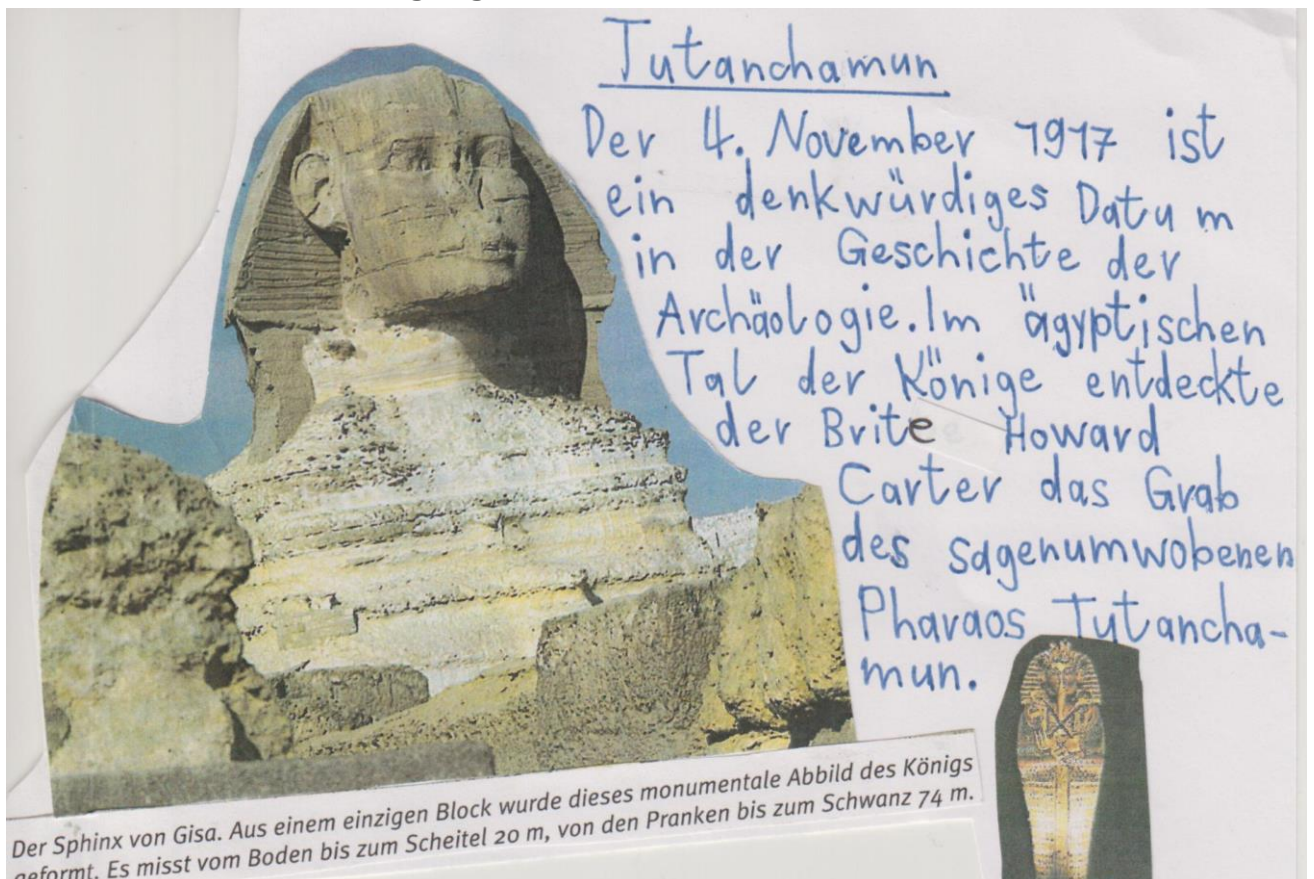 Tutanchamun
Der 4. November 1917 ist
ein denkwürdiges Datum
in der Geschichte der
Archäologie. Im ägyptischen
Tal der Könige entdeckte
der Brite Howard
Carter das Grab
des sagenumwobenen
Pharaos Tutancha-
mun.
Der Sphinx von Gisa. Aus einem einzigen Block wurde dieses monumentale Abbild des Königs
geformt. Es misst vom Boden bis zum Scheitel 20 m, von den Pranken bis zum Schwanz 74 m.